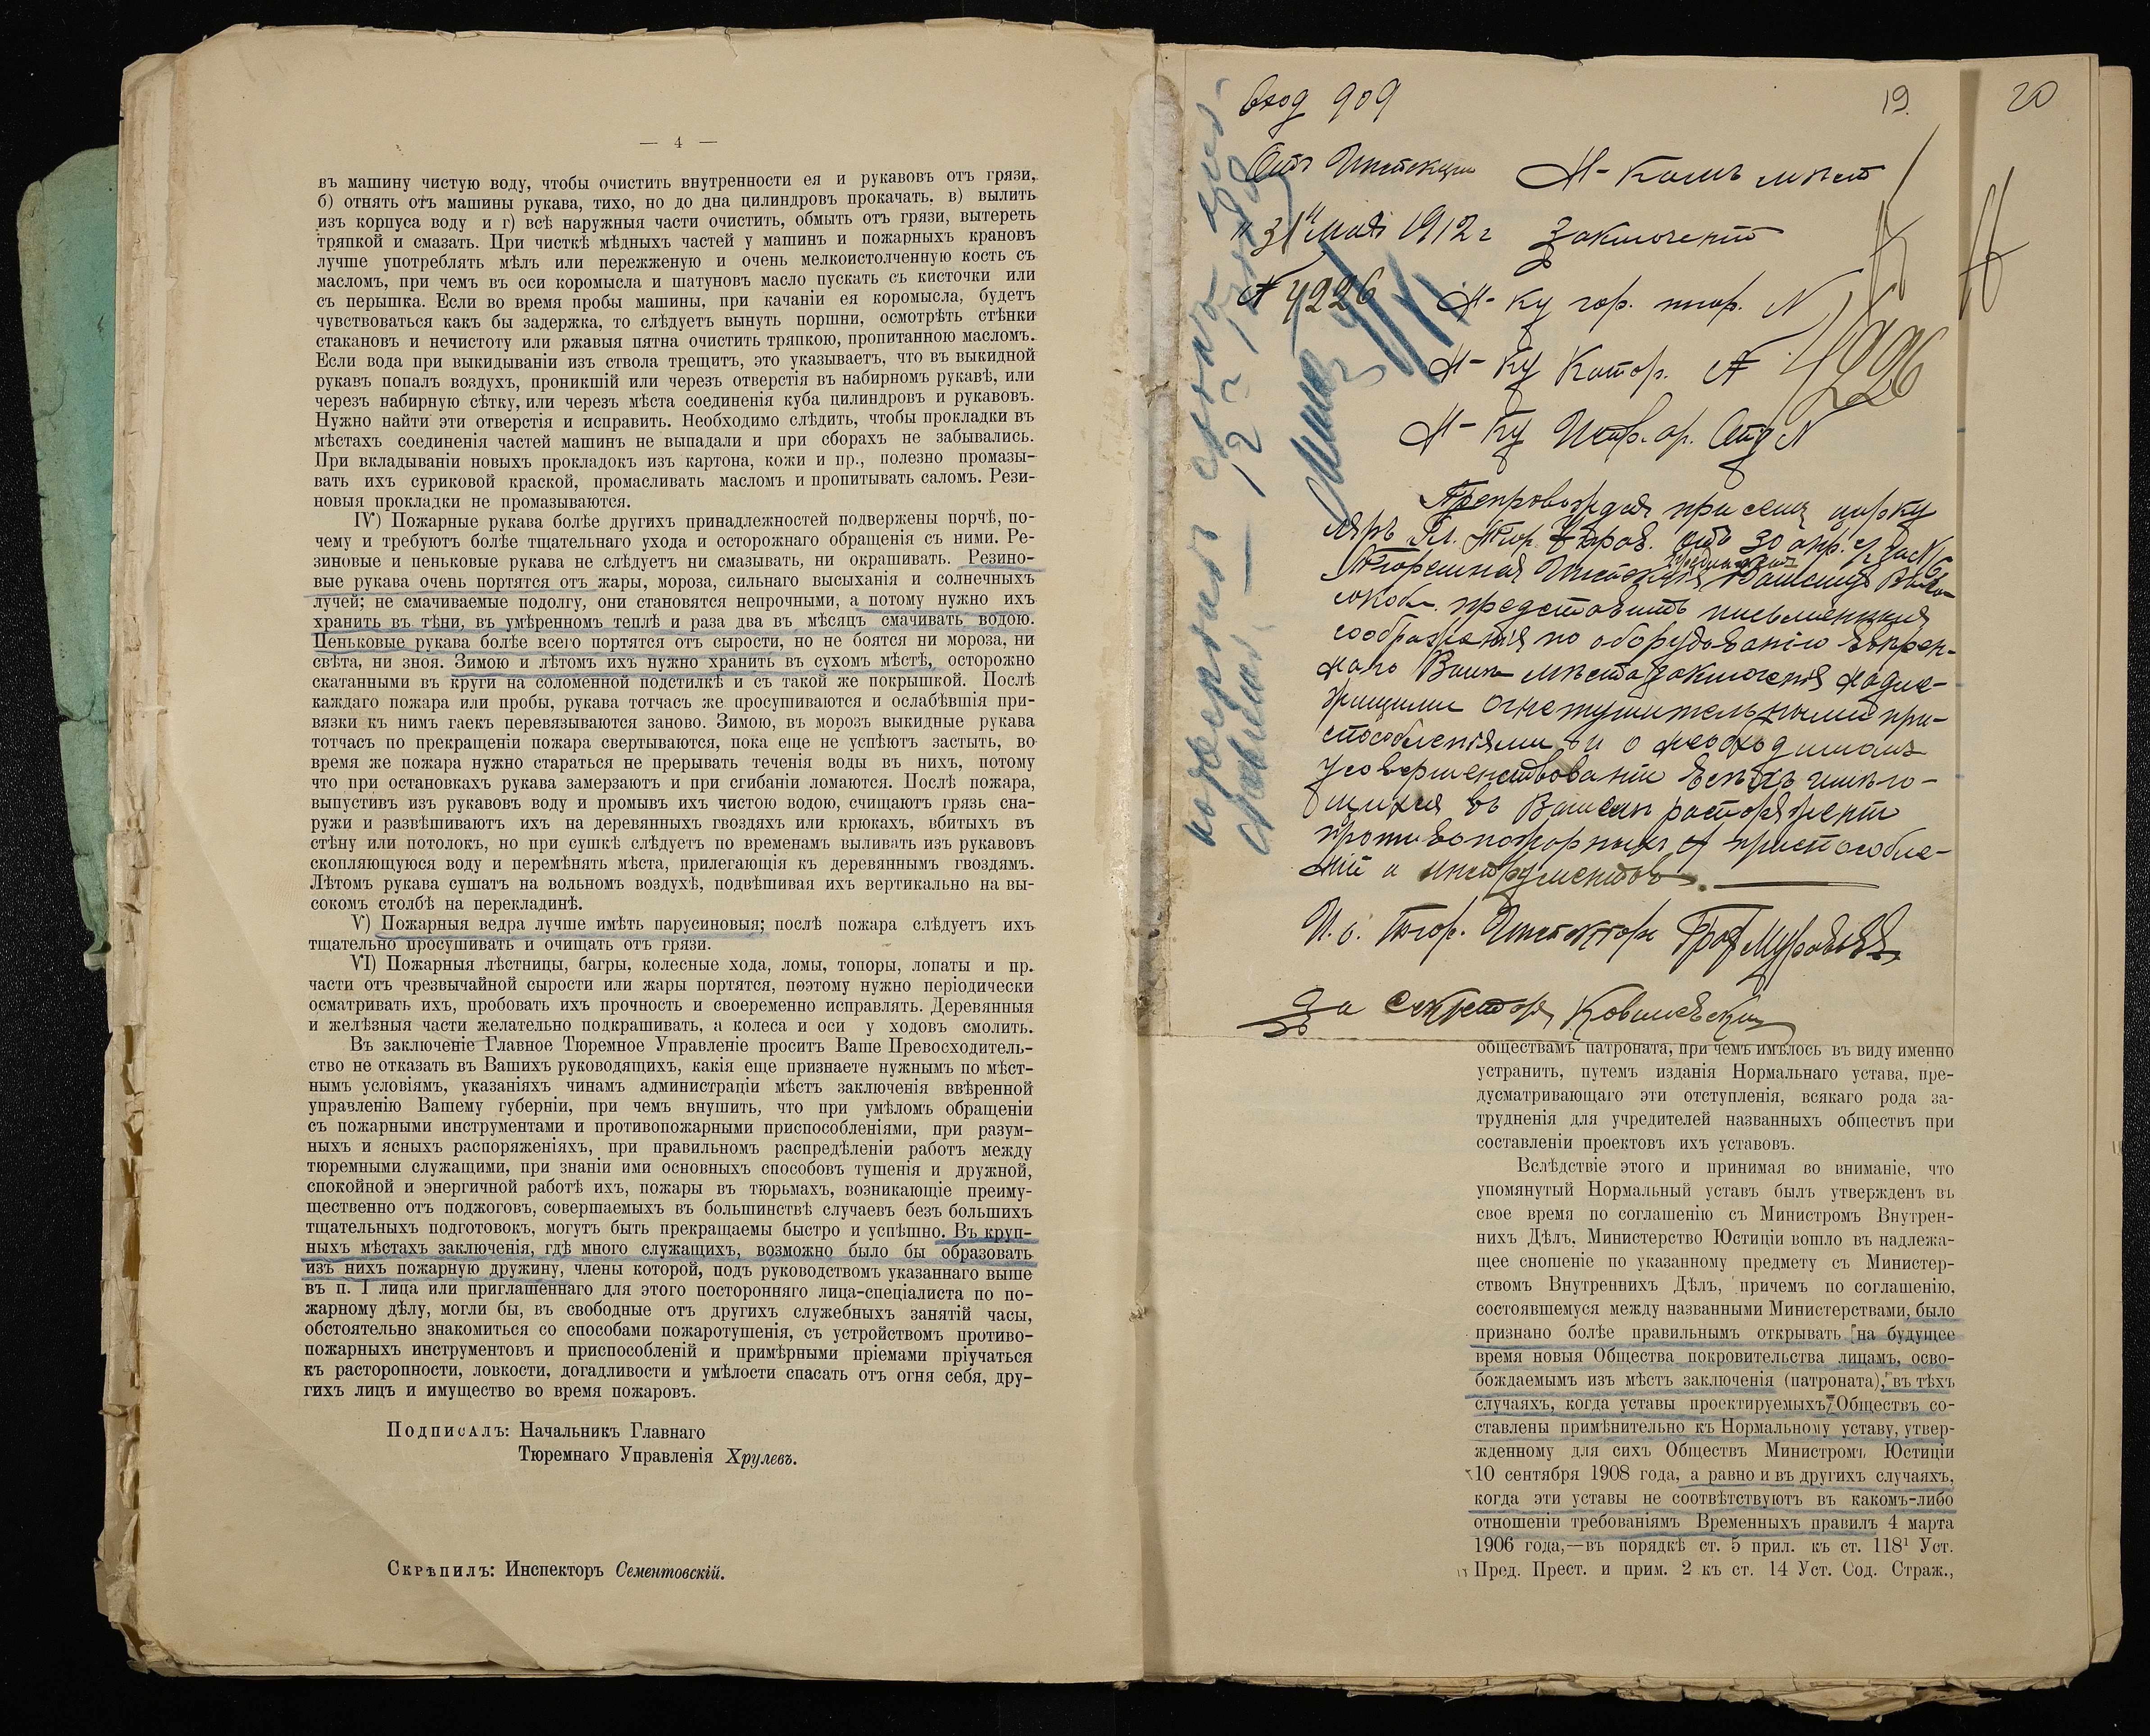 — 4 —
въ машину чистую воду, чтобы очистить внутренности ея и рукавовъ отъ грязи,
б) отнять отъ машины рукава, тихо, но до дна цилиндровъ прокачать. в) вылить
изъ корпуса воду и г) всѣ наружныя части очистить, обмыть отъ грязи, вытереть
тряпкой и смазать. При чисткѣ мѣдныхъ частей у машинъ и пожарныхъ крановъ
лучше употреблять мѣлъ или пережженую и очень мелкоистолченную кость съ
масломъ, при чемъ въ оси коромысла и шатуновъ масло пускать съ кисточки или
съ перышка. Если во время пробы машины, при качаніи ея коромысла, будетъ
чувствоваться какъ бы задержка, то слѣдуетъ вынуть поршни, осмотрѣть стѣнки
стакановъ и нечистоту или ржавыя пятна очистить тряпкою, пропитанною масломъ.
Если вода при выкидываніи изъ ствола трещитъ, это указываетъ, что въ выкидной
рукавъ попалъ воздухъ, проникшій или черезъ отверстія въ набирномъ рукавѣ, или
черезъ набирную сѣтку, или черезъ мѣста соединенія куба цилиндровъ и рукавовъ.
Нужно найти эти отверстія и исправить. Необходимо слѣдить, чтобы прокладки въ
мѣстахъ соединенія частей машинъ не выпадали и при сборахъ не забывались.
При вкладываніи новыхъ прокладокъ изъ картона, кожи и пр., полезно промазы-
вать ихъ суриковой краской, промасливать масломъ и пропитывать саломъ. Рези-
новыя прокладки не промазываются.
IV) Пожарные рукава болѣе другихъ принадлежностей подвержены порчѣ, по-
чему и требуютъ болѣе тщательнаго ухода и осторожнаго обращенія съ ними. Ре-
зиновые и пеньковые рукава не слѣдуетъ ни смазывать, ни окрашивать. Резино-
вые рукава очень портятся отъ жары, мороза, сильнаго высыханія и солнечныхъ
лучей; не смачиваемые подолгу, они становятся непрочными, а потому нужно ихъ
хранить въ тѣни, въ умѣренномъ теплѣ и раза два въ мѣсяцъ смачивать водою.
Пеньковые рукава болѣе всего портятся отъ сырости, но не боятся ни мороза, ни
свѣта, ни зноя. Зимою и лѣтомъ ихъ нужно хранить въ сухомъ мѣстѣ, осторожно
скатанными въ круги на соломенной подстилкѣ и съ такой же покрышкой. Послѣ
каждаго пожара или пробы, рукава тотчасъ же просушиваются и ослабѣвшія при-
вязки къ нимъ гаекъ перевязываются заново. Зимою, въ морозъ выкидные рукава
тотчасъ по прекращеніи пожара свертываются, пока еще не успѣютъ застыть, во
время же пожара нужно стараться не прерывать теченія воды въ нихъ, потому
что при остановкахъ рукава замерзаютъ и при сгибаніи ломаются. Послѣ пожара,
выпустивъ изъ рукавовъ воду и промывъ ихъ чистою водою, счищаютъ грязь сна-
ружи и развѣшиваютъ ихъ на деревянныхъ гвоздяхъ или крюкахъ, вбитыхъ въ
стѣну или потолокъ, но при сушкѣ слѣдуетъ по временамъ выливать изъ рукавовъ
скопляющуюся воду и перемѣнять мѣста, прилегающія къ деревяннымъ гвоздямъ.
Лѣтомъ рукава сушатъ на вольномъ воздухѣ, подвѣшивая ихъ вертикально на вы-
сокомъ столбѣ на перекладинѣ.
V) Пожарныя ведра лучше имѣть парусиновыя; послѣ пожара слѣдуетъ ихъ
тщательно просушивать и очищать отъ грязи.
VI) Пожарныя лѣстницы, багры, колесные хода, ломы, топоры, лопаты и пр.
части отъ чрезвычайной сырости или жары портятся, поэтому нужно періодически
осматривать ихъ, пробовать ихъ прочность и своеременно исправлять. Деревянныя
и желѣзныя части желательно подкрашивать, а колеса и оси у ходовъ смолить.
Въ заключеніе Главное Тюремное Управленіе проситъ Ваше Превосходитель-
ство не отказать въ Вашихъ руководящихъ, какія еще признаете нужнымъ по мѣст-
нымъ условіямъ, указаніяхъ чинамъ администраціи мѣстъ заключенія ввѣренной
управленію Вашему губерніи, при чемъ внушить, что при умѣломъ обращеніи
съ пожарными инструментами и противопожарными приспособленіями, при разум-
ныхъ и ясныхъ распоряженіяхъ, при правильномъ распредѣленіи работъ между
тюремными служащими, при знаніи ими основныхъ способовъ тушенія и дружной,
спокойной и энергичной работѣ ихъ, пожары въ тюрьмахъ, возникающіе преиму-
щественно отъ поджоговъ, совершаемыхъ въ большинствѣ случаевъ безъ большихъ
тщательныхъ подготовокъ, могутъ быть прекращаемы быстро и успѣшно. Въ круп-
ныхъ мѣстахъ заключенія, гдѣ много служащихъ, возможно было бы образовать
изъ нихъ пожарную дружину, члены которой, подъ руководствомъ указаннаго выше
въ п. I лица или приглашеннаго для этого посторонняго лица-спеціалиста по по-
жарному дѣлу, могли бы, въ свободные отъ другихъ служебныхъ занятій часы,
обстоятельно знакомиться со способами пожаротушенія, съ устройствомъ противо-
пожарныхъ инструментовъ и приспособленій и примѣрными пріемами пріучаться
къ расторопности, ловкости, догадливости и умѣлости спасать отъ огня себя, дру-
гихъ лицъ и имущество во время пожаровъ.
Подписалъ: Начальникъ Главнаго
Тюремнаго Управленія Хрулевъ.
Скрѣпилъ: Инспекторъ Сементовскій.
Вход 909
19.
20
Отъ Инспекціи
Н-камъ мѣст
"31" мая 1912 г
заключенія
№ 4226
Н-ку гор. тюр. №
Н-ку Катор. №
4226
Н-ку Испр. ар. Отд №
Препровождая при семъ цирку
ляръ Гл. Тюр. Управ. отъ 30 апр. с/г за №
Тюремная Инспекція Вашему Высо-
кобл. представить письменныя
соображенія по оборудованію ввѣрен-
наго Вамъ мѣста заключенія надле-
жащими огнетушительными при-
способленіями и о необходимомъ
усовершенствованіи всѣхъ имѣю-
щихся въ Вашемъ распоряженіи
противопожарныхъ приспособле-
ній и инструментовъ.
И. о. Тюр. Инспектора Граф Муравьевъ
За Секретаря Ковалевскій
обществамъ патроната, при чемъ имѣлось въ виду именно
устранить, путемъ изданія Нормальнаго устава, пре-
дусматривающаго эти отступленія, всякаго рода за-
трудненія для учредителей названныхъ обществъ при
составленіи проектовъ ихъ уставовъ.
Вслѣдствіе этого и принимая во вниманіе, что
упомянутый Нормальный уставъ былъ утвержденъ въ
свое время по соглашенію съ Министромъ Внутрен-
нихъ Дѣлъ, Министерство Юстиціи вошло въ надлежа-
щее сношеніе по указанному предмету съ Министер-
ствомъ Внутреннихъ Дѣлъ, причемъ по соглашенію,
состоявшемуся между названными Министерствами, было
признано болѣе правильнымъ открывать [на будущее
время новыя Общества покровительства лицамъ, осво-
бождаемымъ изъ мѣстъ заключенія (патроната), въ тѣхъ
случаяхъ, когда уставы проектируемыхъ Обществъ со-
ставлены примѣнительно къ Нормальному уставу, утвер-
жденному для сихъ Обществъ Министромъ Юстиціи
10 сентября 1908 года, а равно и въ другихъ случаяхъ,
когда эти уставы не соотвѣтствуютъ въ какомъ-либо
отношеніи требованіямъ Временныхъ правилъ 4 марта
1906 года,—въ порядкѣ ст. 5 прил. къ ст. 118¹ Уст.
Пред. Прест. и прим. 2 къ ст. 14 Уст. Сод. Страж.,